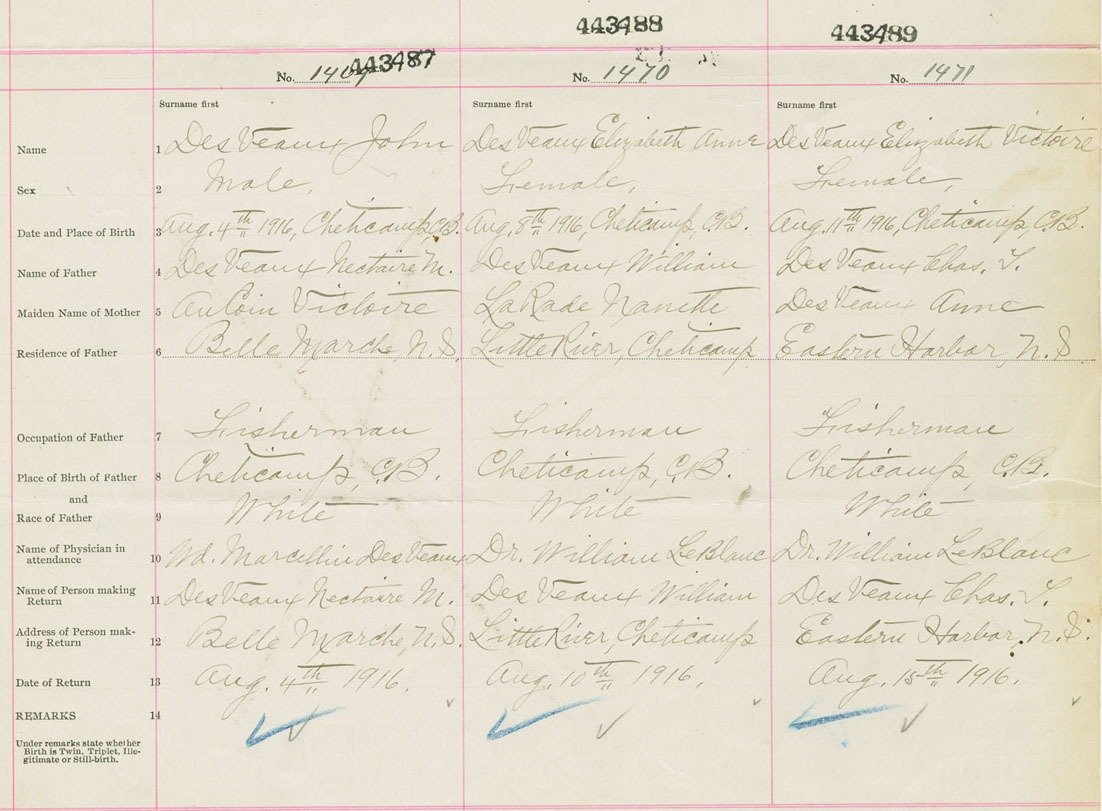 443488
443489
443487
No. 1469
No. 1470
No. 1471
Surname first Surname first Surname first
Name 1 DesVeaux John DesVeaux Elizabeth Anne DesVeaux Elizabeth Victoire
Sex 2 Male, Female, Female,
Date and Place of Birth 3 Aug. 4th 1916, Cheticamp, C.B. Aug. 8th 1916, Cheticamp, C.B. Aug. 11th 1916, Cheticamp, C.B.
Name of Father 4 DesVeaux Nectaire M. DesVeaux William DesVeaux Chas. T.
Maiden Name of Mother 5 AuCoin Victoire LaRade Nanette DesVeaux Anne
Residence of Father 6 Belle Marche, N.S. Little River, Cheticamp Eastern Harbor, N.S.
Occupation of Father 7 Fisherman Fisherman Fisherman
Place of Birth of Father 8 Cheticamp, C.B. Cheticamp, C.B. Cheticamp, C.B.
and
Race of Father 9 White White White
Name of Physician in
attendance 10 Wd. Marcellin DesVeaux Dr. William LeBlanc Dr. William LeBlanc
Name of Person making
Return 11 DesVeaux Nectaire M. DesVeaux William DesVeaux Chas. T.
Address of Person mak-
ing Return 12 Belle Marche, N.S. Little River, Cheticamp Eastern Harbor, N.S.
Date of Return 13 Aug. 4th 1916. Aug. 10th 1916, Aug. 15th 1916.
REMARKS 14
Under remarks state whether
Birth is Twin, Triplet, Ille-
gitimate or Still-birth.